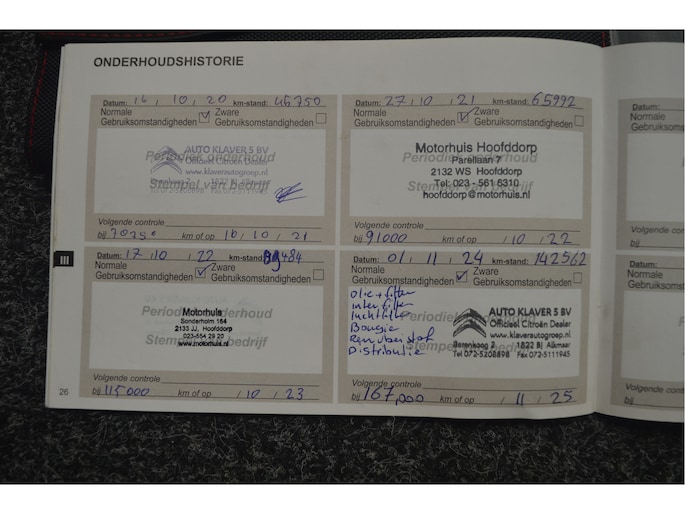 ONDERHOUDSHISTORIE
Datum: 16, 10, 20 km-stand: 46750
Normale Gebruiksomstandigheden Zware Gebruiksomstandigheden
AUTO KLAVER 5 BV
Officieel Citroën Dealer
www.klaverautogroep.nl
Periodiek onderhoud
Stempel van bedrijf
Volgende controle
bij km of op 16, 10, 21
Datum: 27, 10, 21 km-stand: 65992
Normale Gebruiksomstandigheden Zware Gebruiksomstandigheden
Motorhuis Hoofddorp
Parellaan 7
2132 WS Hoofddorp
Tel: 023 - 561 6310
hoofddorp@motorhuis.nl
Volgende controle
bij 91000 km of op / 10 / 22
Datum: 17, 10, 22 km-stand: 89484
Normale Gebruiksomstandigheden Zware Gebruiksomstandigheden
Motorhuis
Sonderholm 164
2133 JJ, Hoofddorp
023-554 29 20
www.motorhuis.nl
Volgende controle
bij 115000 km of op / 10 / 23
Datum: 01, 11, 24 km-stand: 142562
Normale Gebruiksomstandigheden Zware Gebruiksomstandigheden
Olie + filter
Luchtfilter
Bougie
Distributie
AUTO KLAVER 5 BV
Officieel Citroën Dealer
www.klaverautogroep.nl
Berenkoog 2 1822 BJ Alkmaar
Tel 072-5208698 Fax 072-5111945
Volgende controle
bij 167,000 km of op / 11 / 25
III
26